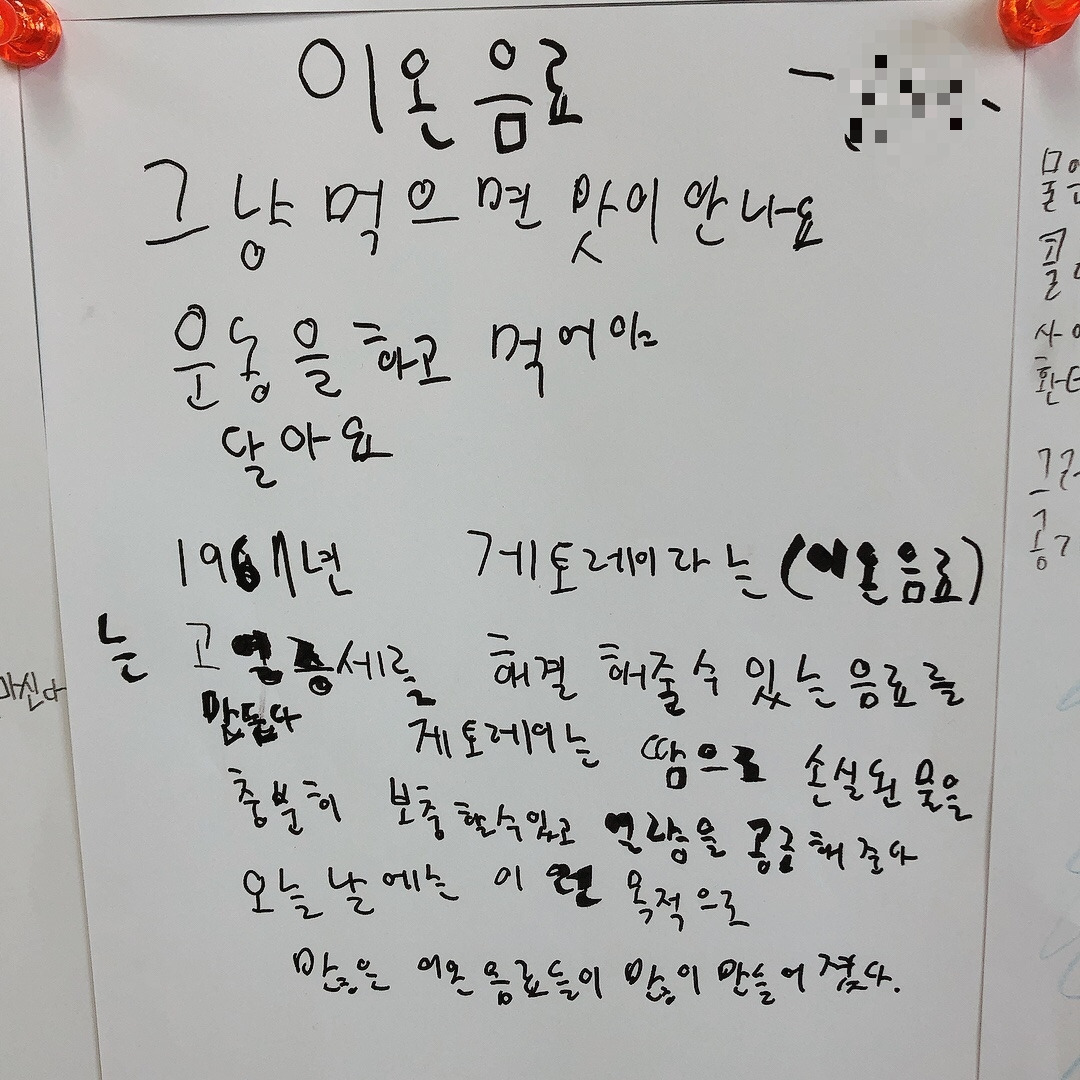 이온음료
그냥 먹으면 맛이 안나요
운동을 하고 먹어야
달아요
1967년 게토레이라는 (이온음료)
는 고 증세를 해결 해줄 수 있는 음료를
만들다 게토레이는 땀으로 손실된 물을
충분히 보충할수있고 열량을 공급해 준다
오늘날에는 이런 목적으로
많은 이온음료들이 많이 만들어졌다.
마신다